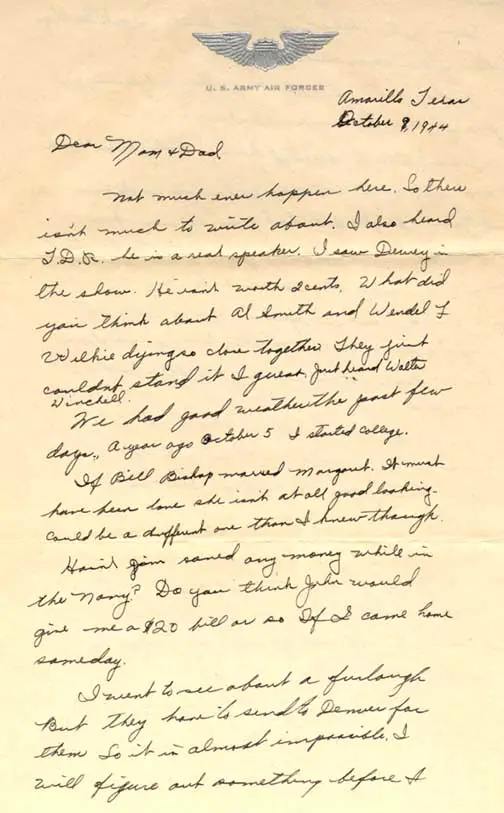 U. S. ARMY AIR FORCES
Amarillo Texas
October 9, 1944
Dear Mom & Dad
Not much ever happen here. So there
isn't much to write about. I also heard
F.D.R. he is a real speaker. I saw Dewey in
the show. He isn't worth 2 cents. What did
you think about Al Smith and Wendel L
Wilkie dying so close together. They just
couldnt stand it I guess. Just heard Walter
Winchell.
We had good weather the past few
days., A year ago October 5 I started college.
If Bill Bishop married Margaret. It must
have been love she isn't at all good looking.
Could be a different one than I knew though.
Hasn't Jim saved any money while in
the Navy? Do you think John would
give me a $20 bill or so If I came home
someday.
I went to see about a furlough
But they have to send to Denver for
them So it is almost impossible. I
will figure out something before I